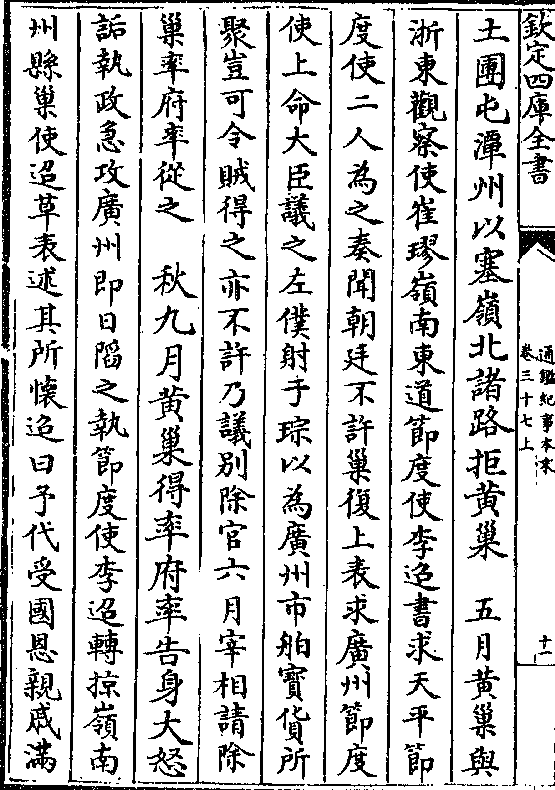 欽定四庫全書
通鑑紀事本末
卷三十七上
十一
土團屯潭州以塞嶺北諸路拒黃巢　五月黃巢與
浙東觀察使崔璆嶺南東道節度使李迢書求天平節
度使二人為之奏聞朝廷不許巢復上表求廣州節度
使上命大臣議之左僕射于琮以為廣州市舶寶貨所
聚豈可令賊得之亦不許乃議別除官六月宰相請除
巢率府率從之　秋九月黃巢得率府率告身大怒
詬執政急攻廣州即日陷之執節度使李迢轉掠嶺南
州縣巢使迢草表述其所懷迢曰予代受國恩親戚滿